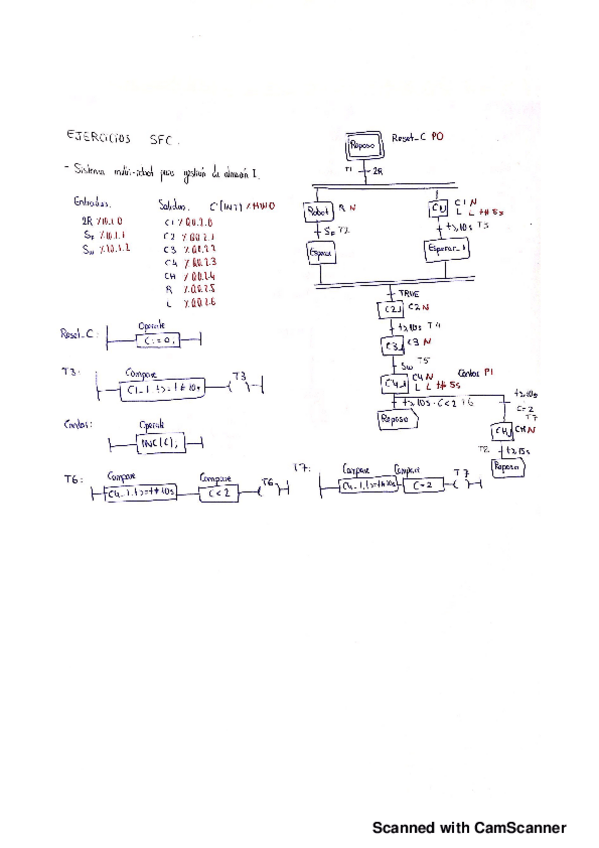 EJERCICIOS SFC.
- Sistema multi-robot para gestión de almacén I.
Entradas. Salidas. C [INT] %MW0
2R %I0.1.0 C1 %Q0.2.0
SR %I0.1.1 C2 %Q0.2.1
SW %I0.1.2 C3 %Q0.2.2
C4 %Q0.2.3
CH %Q0.2.4
R %Q0.2.5
L %Q0.2.6
Reposo Reset_C P0
T1 2R
Robot R N
SR T2
Espera
C1 N
L L t# 5s
t≥10s T3
Esperar_1
TRUE
C2_1 C2 N
t≥10s T4
C3_1 C3 N
SW T5
C4_1 C4 N Contas P1
L L t# 5s
t≥10s · C<2 T6
Reposo
t≥10s
C=2
T7
CH_1 CH N
t≥15s
Reposo
Reset_C: Operate
C:=0;
T3: Compare
C1_1.t>=t#10s T3
Contas: Operate
INC(C);
T6: Compare Compare
C4_1.t>=t#10s C<2 T6
T7: Compare Compare
C4_1.t>=t#10s C=2 T7
Scanned with CamScanner